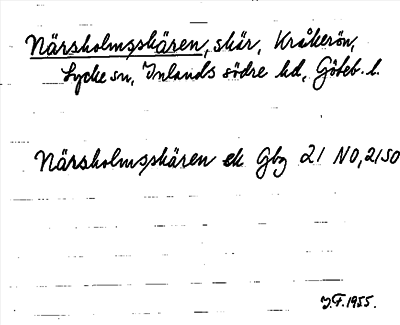 Närsholmsskären, skär, Kråkerön,
Lycke sn, Inlands södre hd, Göteb. l.
Närsholmsskären ek Gbg 21 NO, 21 SO
J.F. 1955.